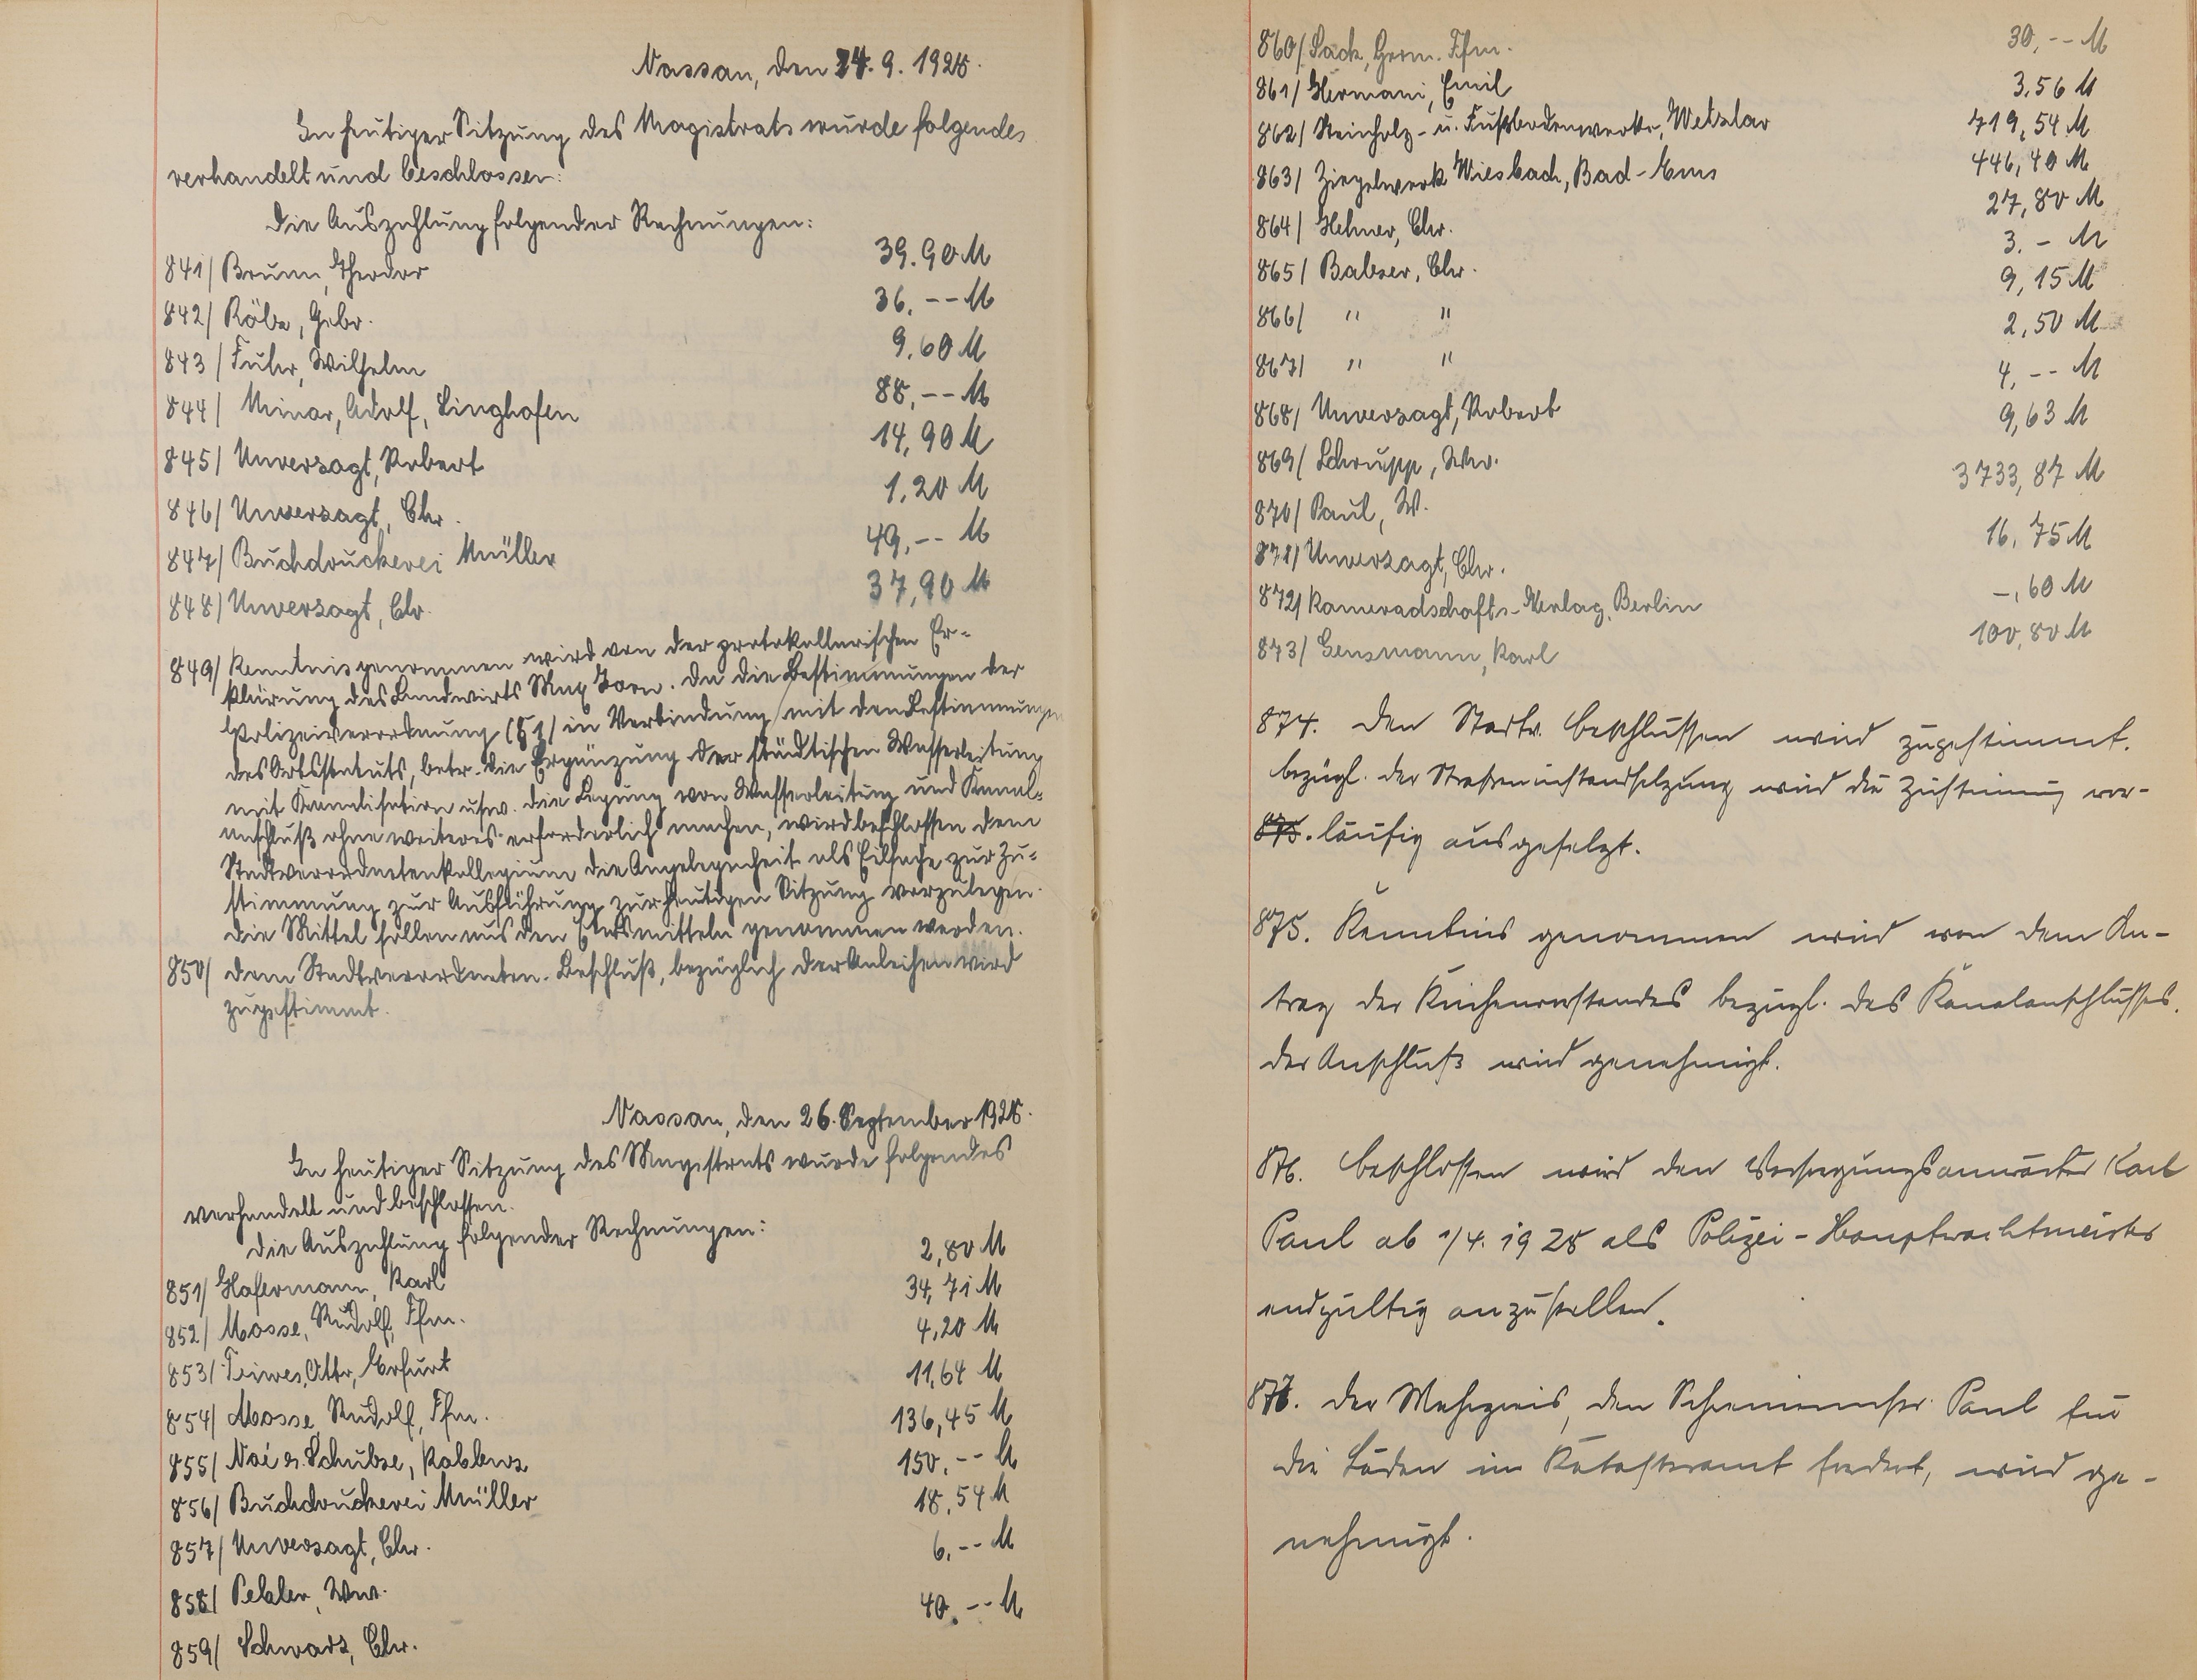 Nassau, den 24. 9. 1928.
In heutiger Sitzung des Magistrats wurde folgendes
verhandelt und beschlossen:
Die Auszahlung folgender Rechnungen:
841/ Brunn, Theodor 39.90 M
842/ Gebr. 36.-- M
843/ Fuhr, Wilhelm 9.60 M
844/ Minor, Adolf, Singhofen 88,-- M
845/ Unverzagt, Robert 14,90 M
846/ Unverzagt, Chr. 1.20 M
847/ Buchdruckerei Müller 49,-- M
848/ Unverzagt, Chr. 37,90 M
849/ Kenntnis genommen wird von der protokollarischen Er-
klärung des Landwirts Max. Da die Bestimmungen der
Polizeiverordnung (§ 1) in Verbindung mit den Bestimmungen
des Ortsstatuts, betr. die Ergänzung der städtischen Wasserleitung
mit Kanalisation usw. die Legung von Wasserleitung und Kanal-
anschluß ohne weiteres erforderlich machen, wird beschlossen dem
Stadtverordnetenkollegium die Angelegenheit als Eilsache zur Zu-
stimmung zur Ausführung zur heutigen Sitzung vorzulegen.
Die Mittel sollen aus den Etatsmitteln genommen werden.
850/ Dem Stadtverordneten-Beschluß, bezüglich der Anleihen wird
zugestimmt.
Nassau, den 26. September 1928.
In heutiger Sitzung des Magistrats wurde folgendes
verhandelt und beschlossen.
Die Auszahlung folgender Rechnungen:
851/ Hafermann, Karl 2,80 M
852/ Mosse, Rudolf, Ffm. 34,71 M
853/ Otto, Erfurt 4,20 M
854/ Mosse, Rudolf, Ffm. 11,64 M
855/ Noé u. Schulze, Koblenz 136,45 M
856/ Buchdruckerei Müller 150.-- M
857/ Unverzagt, Chr. 18,54 M
858/ Wwe. 6,-- M
859/ Schwarz, Chr. 40.-- M
860/ Sack, Herm. Ffm. 30,-- M
861/ Hermani, Emil 3,56 M
862/ Steinholz- u. Fußbodenwerke, Wetzlar 719,54 M
863/ Ziegelwerk Wiesbach, Bad-Ems 446,40 M
864/ Hehner, Chr. 27,80 M
865/ Balzer, Chr. 3.- M
866/ " " 9,15 M
867/ " " 2,50 M
868/ Unverzagt, Robert 4,-- M
869/ Schrupp, Ww. 9,63 M
870/ Paul, W. 3733,87 M
871/ Unverzagt, Chr. 16,75 M
872/ Kameradschafts-Verlag, Berlin -,60 M
873/ Gensmann, Karl 100,80 M
874. Den Stadtv. Beschlüssen wird zugestimmt.
bezügl. der Straßeninstandsetzung wird die Zustimmung vor-
875. läufig ausgesetzt.
875. Kenntnis genommen wird von dem An-
trag des Kirchenvorstandes bezügl. des Kanalanschlusses.
Der Anschluß wird genehmigt.
876. Beschlossen wird den Versorgungsanwärter Karl
Paul ab 1/4. 1928 als Polizei-Hauptwachtmeister
endgültig anzustellen.
877. Der Mehrpreis, den Schreinermstr. Paul für
die Läden im Katasteramt fordert, wird ge-
nehmigt.